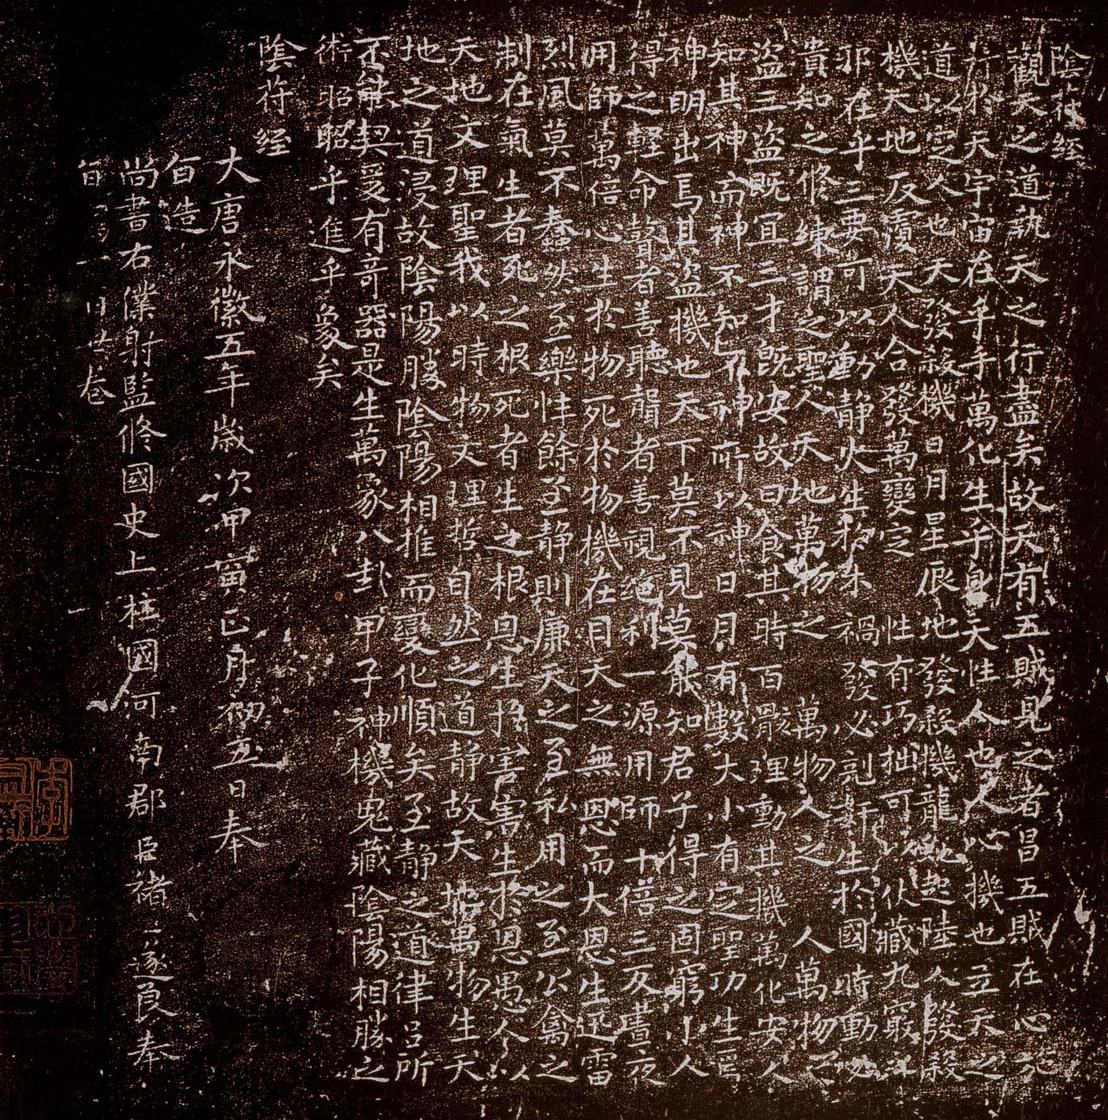 陰符經
觀天之道執天之行盡矣故天有五賊見之者昌五賊在心施
行於天宇宙在乎手萬化生乎身天性人也人心機也立天之
道以定人也天發殺機日月星辰地發殺機龍蛇起陸人發殺
機天地反覆天人合發萬變定 性有巧拙可以伏藏九竅之
邪在乎三要可以動靜火生於木禍發必剋奸生於國時動必
潰知之修練謂之聖人天地萬物之 萬物人之 人萬物之
盜三盜既宜三才既安故曰食其時百骸理動其機萬化安人
知其神而神不知不神所以神日月有數大小有定聖功生焉
神明出焉其盜機也天下莫不見莫能知君子得之固窮小人
得之輕命瞽者善聽聾者善視絕利一源用師十倍三反晝夜
用師萬倍心生於物死於物機在目天之無恩而大恩生迅雷
烈風莫不蠢然至樂性餘至靜則廉天之至私用之至公禽之
制在氣生者死之根死者生之根恩生於害害生於恩愚人以
天地文理聖我以時物文理哲自然之道靜故天地萬物生天
地之道浸故陰陽勝陰陽相推而變化順矣至靜之道律呂所
不能契爰有奇器是生萬象八卦甲子神機鬼藏陰陽相勝之
術昭昭乎進乎象矣
陰符經
大唐永徽五年歲次甲寅正月初五日奉
旨造
尚書右僕射監修國史上柱國河南郡臣褚遂良奉
旨 一 卷